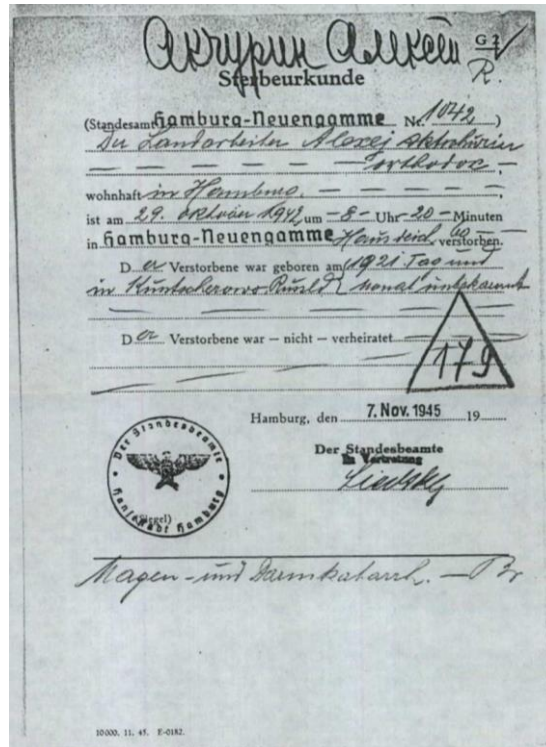 Акчурин Алексей G 2
R.
Sterbeurkunde
(Standesamt Hamburg-Neuengamme Nr. 1042 )
Der Landarbeiter Alexej Aktschurin
— — — — — — orthodox, —
wohnhaft in Hamburg, — — — — —
ist am 29. Oktober 1942 um — 8 — Uhr — 20 — Minuten
in Hamburg-Neuengamme Hausdeich 60 verstorben.
D er Verstorbene war geboren am (1921 Tag und
in Kuntscherowo Rußld. Monat unbekannt
D er Verstorbene war — nicht — verheiratet
179
Hamburg, den 7. Nov. 1945 19
Der Standesbeamte
In Vertretung
Der Standesbeamte
(Siegel)
Hansestadt Hamburg
Magen- und Darmkatarrh. —
10000. 11. 45. E-0182.